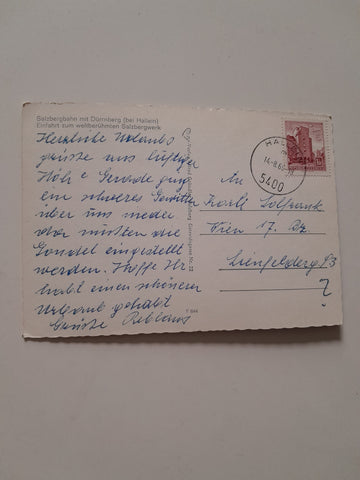 Salzbergbahn mit Dürrnberg (bei Hallein)
Einfahrt zum weltberühmten Salzbergwerk
Herzliche Urlaubs
grüsse aus luftiger
Höhe Gerade ging
ein schweres Gewitter
über uns nieder
aber mussten die
Gondel eingestellt
werden. Hoffe Ihr
habt einen schönen
Urlaub gehabt
Grüsse
T 844
HAL
5400
An
Karli
Wien 17. Bz.